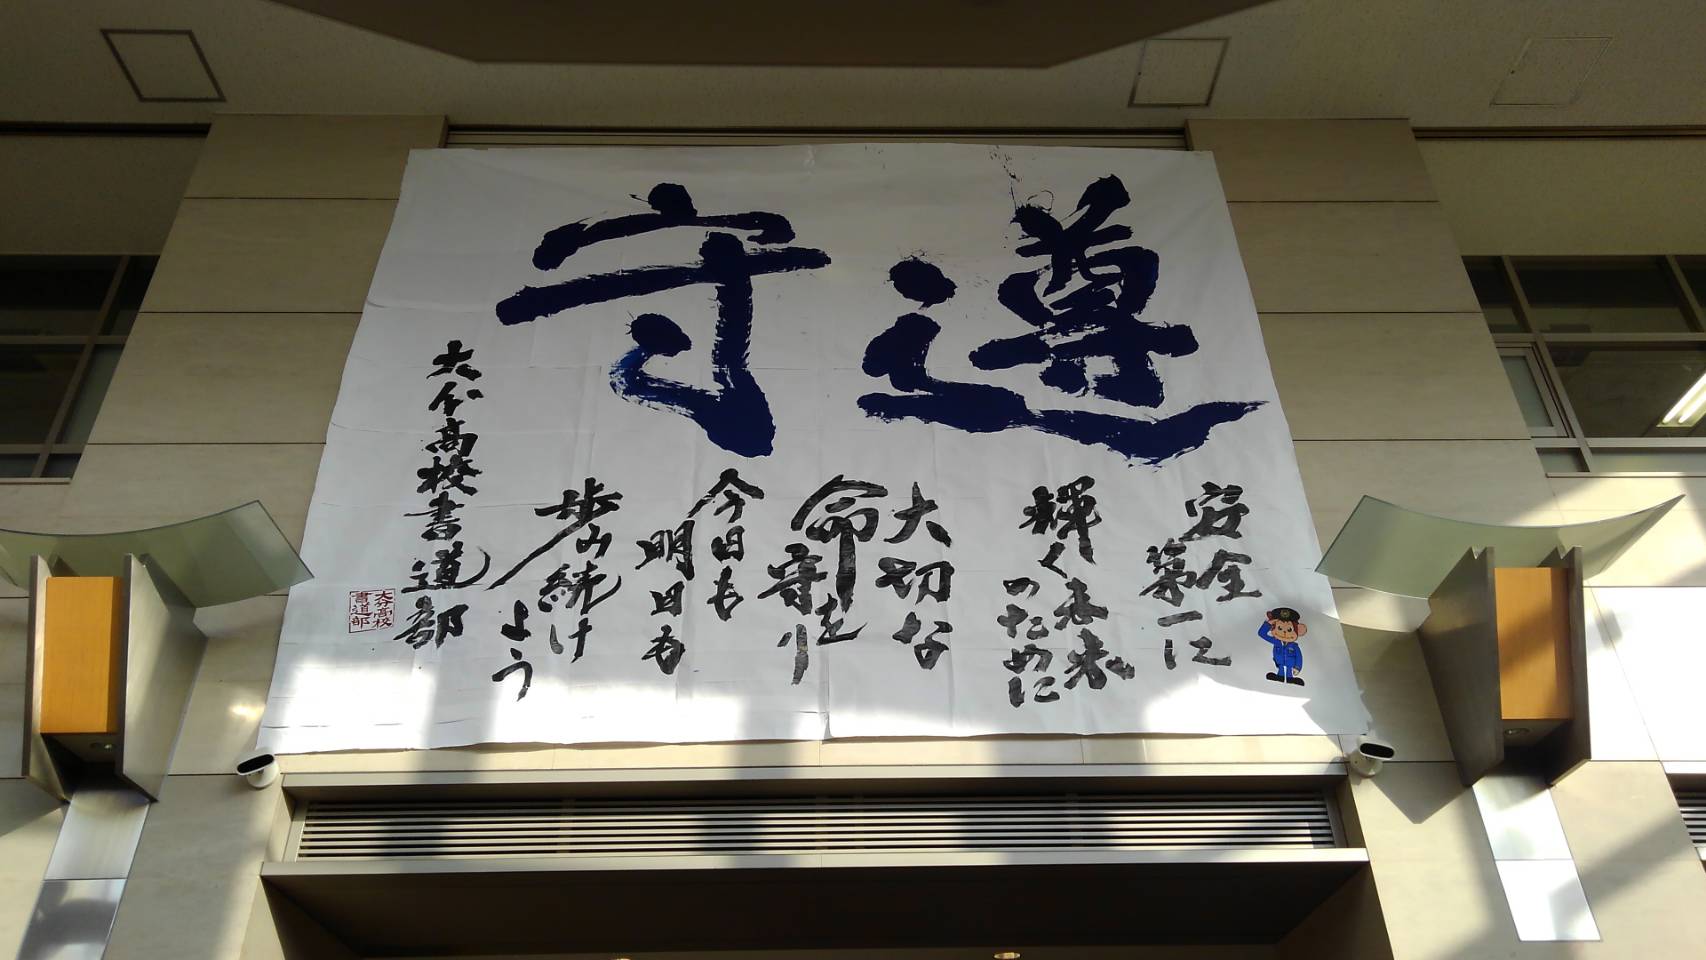 遵守
安全
第一に
輝く未来
のために
大切な
命を
守り
今日も
明日も
歩み続け
よう
大分高校書道部
大分高校
書道部